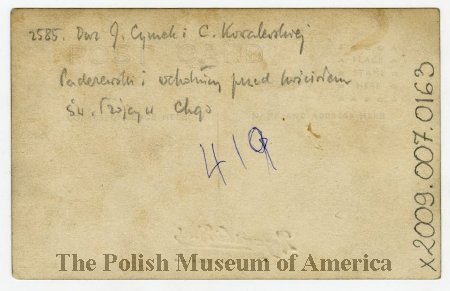 2585. Dar J. Cymek i C. Kowalewskiej
Paderewski i ochotnicy przed kościołem
Św. Trójcy w Chgo
419
X2009.007.0163
The Polish Museum of America